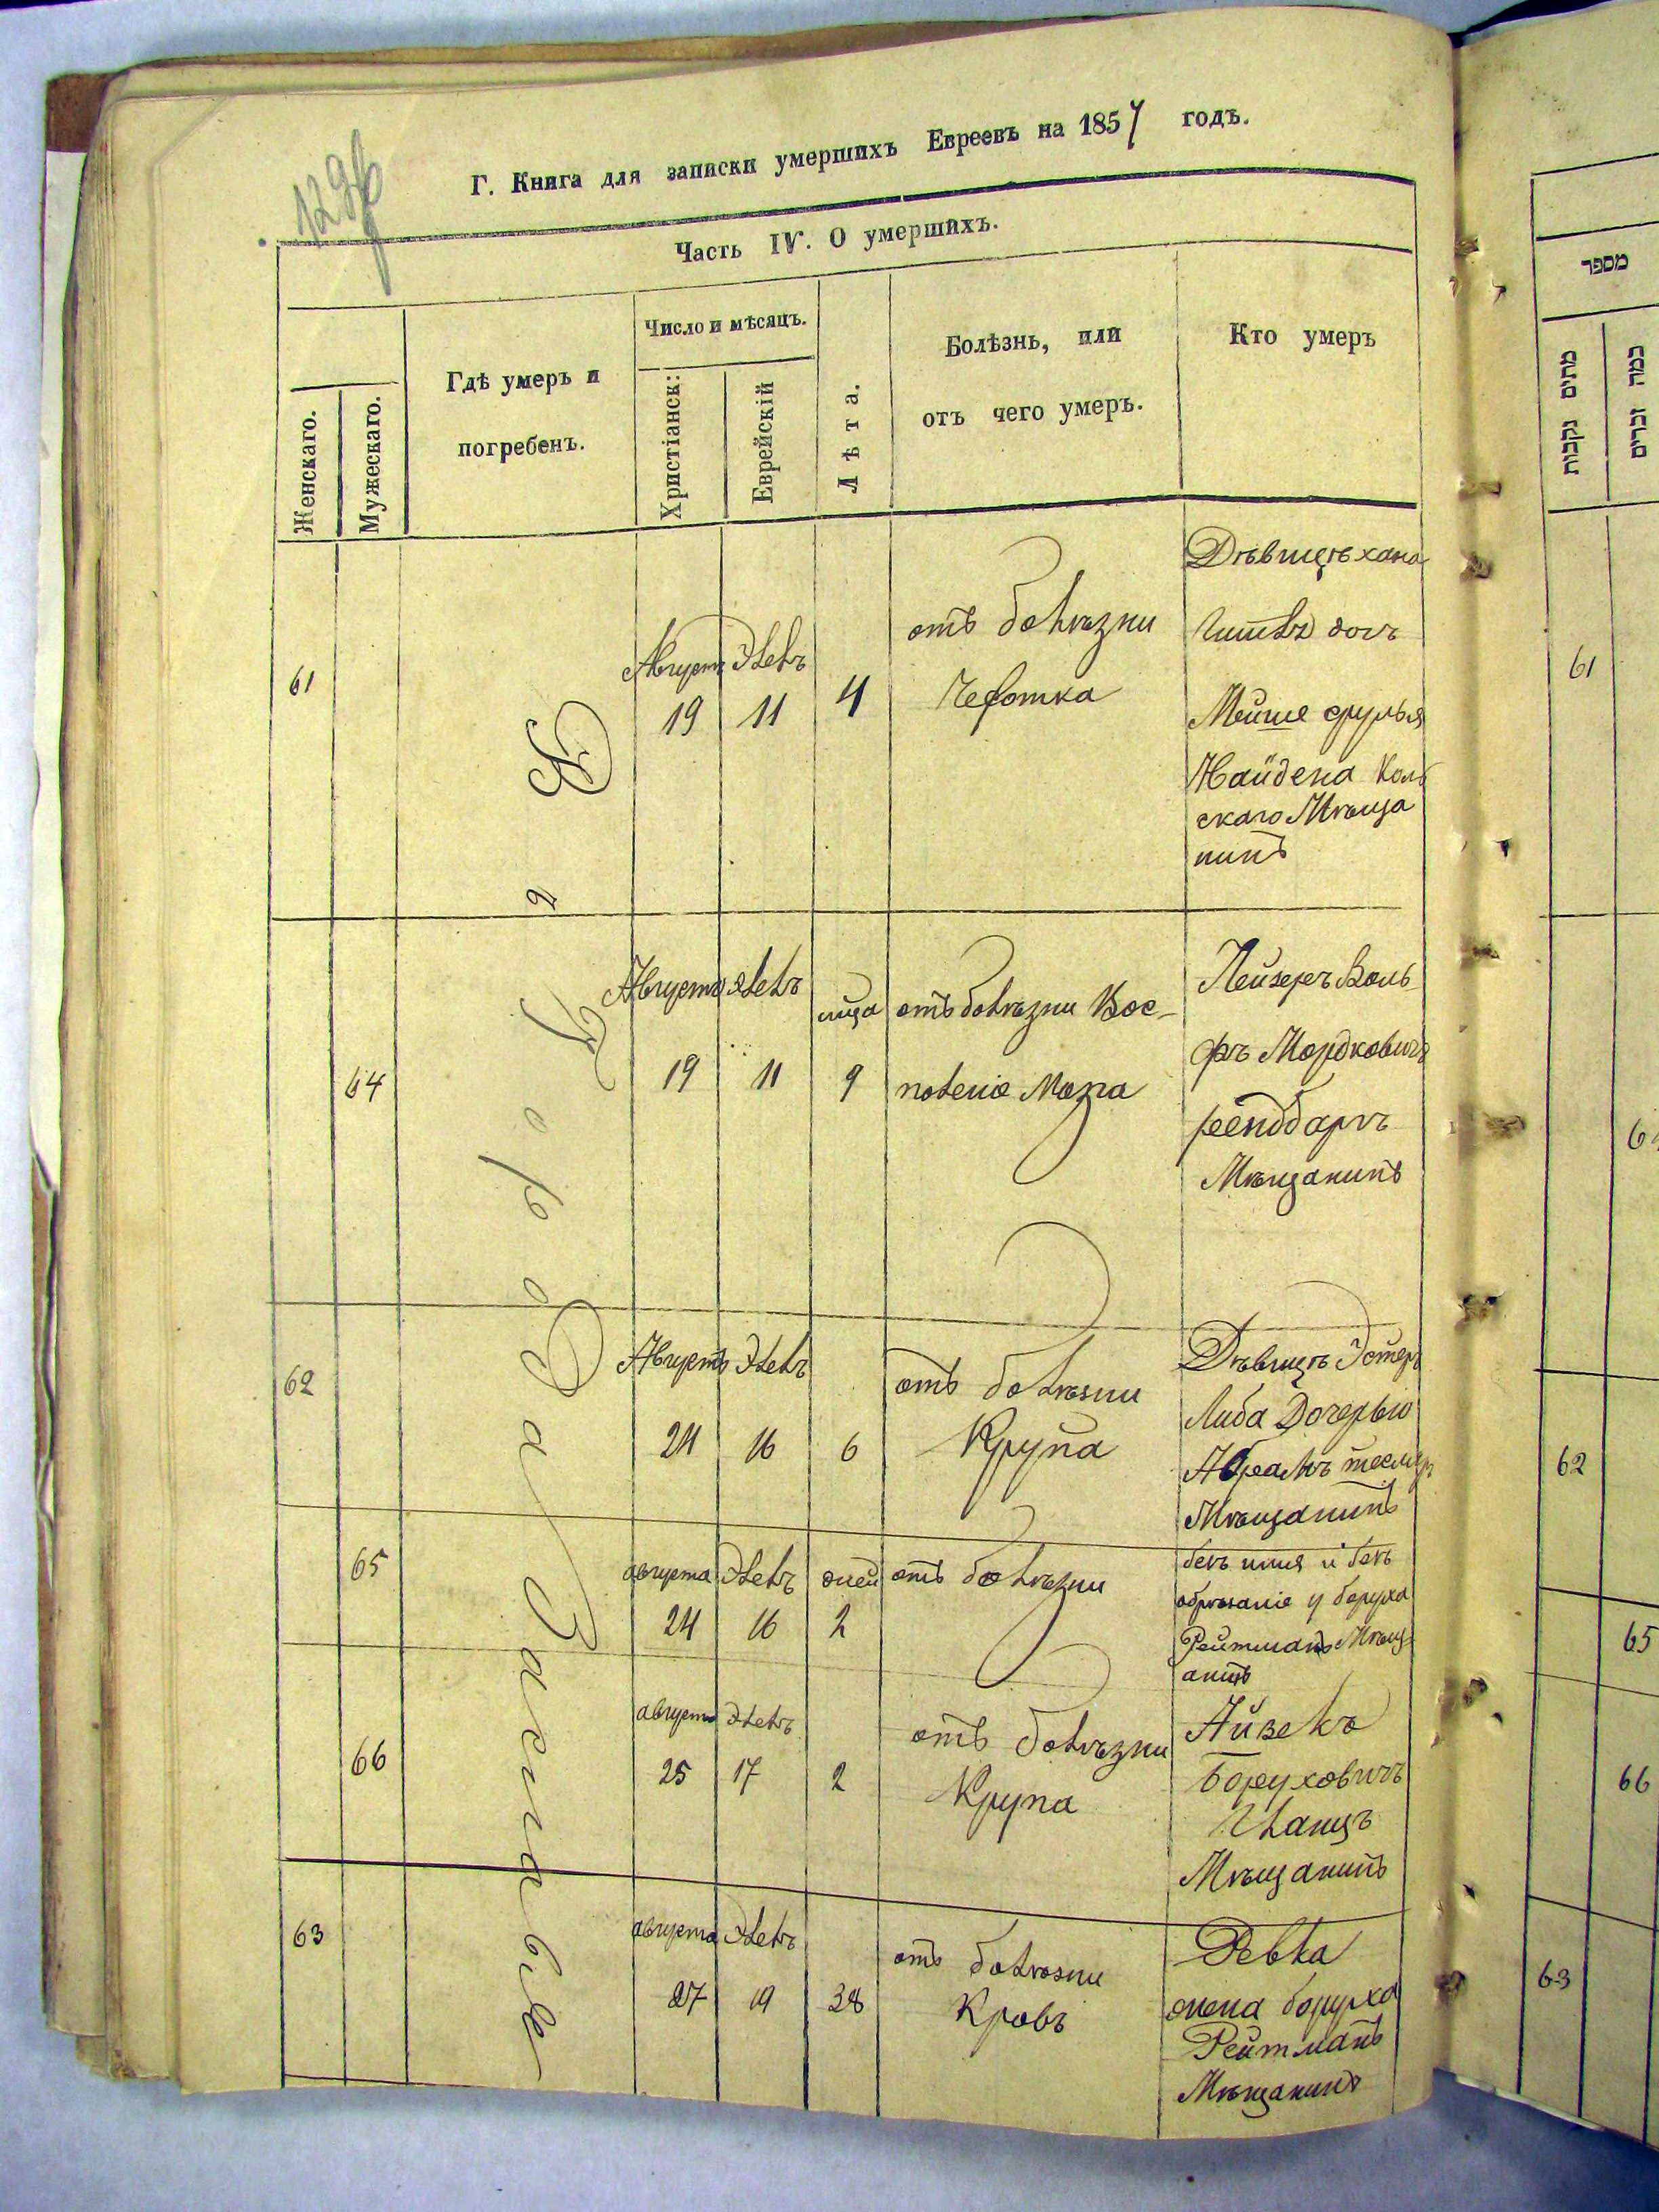 Г. Книга для записки умершихъ Евреевъ на 1857 годъ.
Часть IV. О умершихъ.
Женскаго.
Мужескаго.
Гдѣ умеръ и
погребенъ.
Число и мѣсяцъ.
Христіанск:
Еврейскій
Лѣта.
Болѣзнь, или
отъ чего умеръ.
Кто умеръ
Въ Городѣ Заславлѣ
61
Августъ Элелъ
19 11 4
отъ болѣзни
Чехотка
Дѣвицѣ хана
дочъ
Мейше
Найдена
скаго Мѣща
нинъ
64
Августъ Элелъ
19 11 9
отъ болѣзни Вос-
поленіе Мозга
Лейзеръ Воль-
фъ Мордковичъ
Мѣщанинъ
62
Августъ Элелъ
24 16 6
отъ болѣзни
Крупа
Дѣвицѣ Эстеръ
Либа Дочерью
Абрамъ
Мѣщанинъ
65
августа Элелъ дней
24 16 2
отъ болѣзни
безъ имя и безъ
обрѣзаніе у боруха
Рейтманъ Мѣщ-
анинъ
66
августа Элелъ
25 17 2
отъ болѣзни
Крупа
Айзекъ
Боруховичъ
Гланцъ
Мѣщанинъ
63
августа Элелъ
27 19 38
отъ болѣзни
Кровъ
Ревка
жена боруха
Рейтманъ
Мѣщанинъ
מספר
מתים נקבות
כמה זכרים
61
62
65
66
63